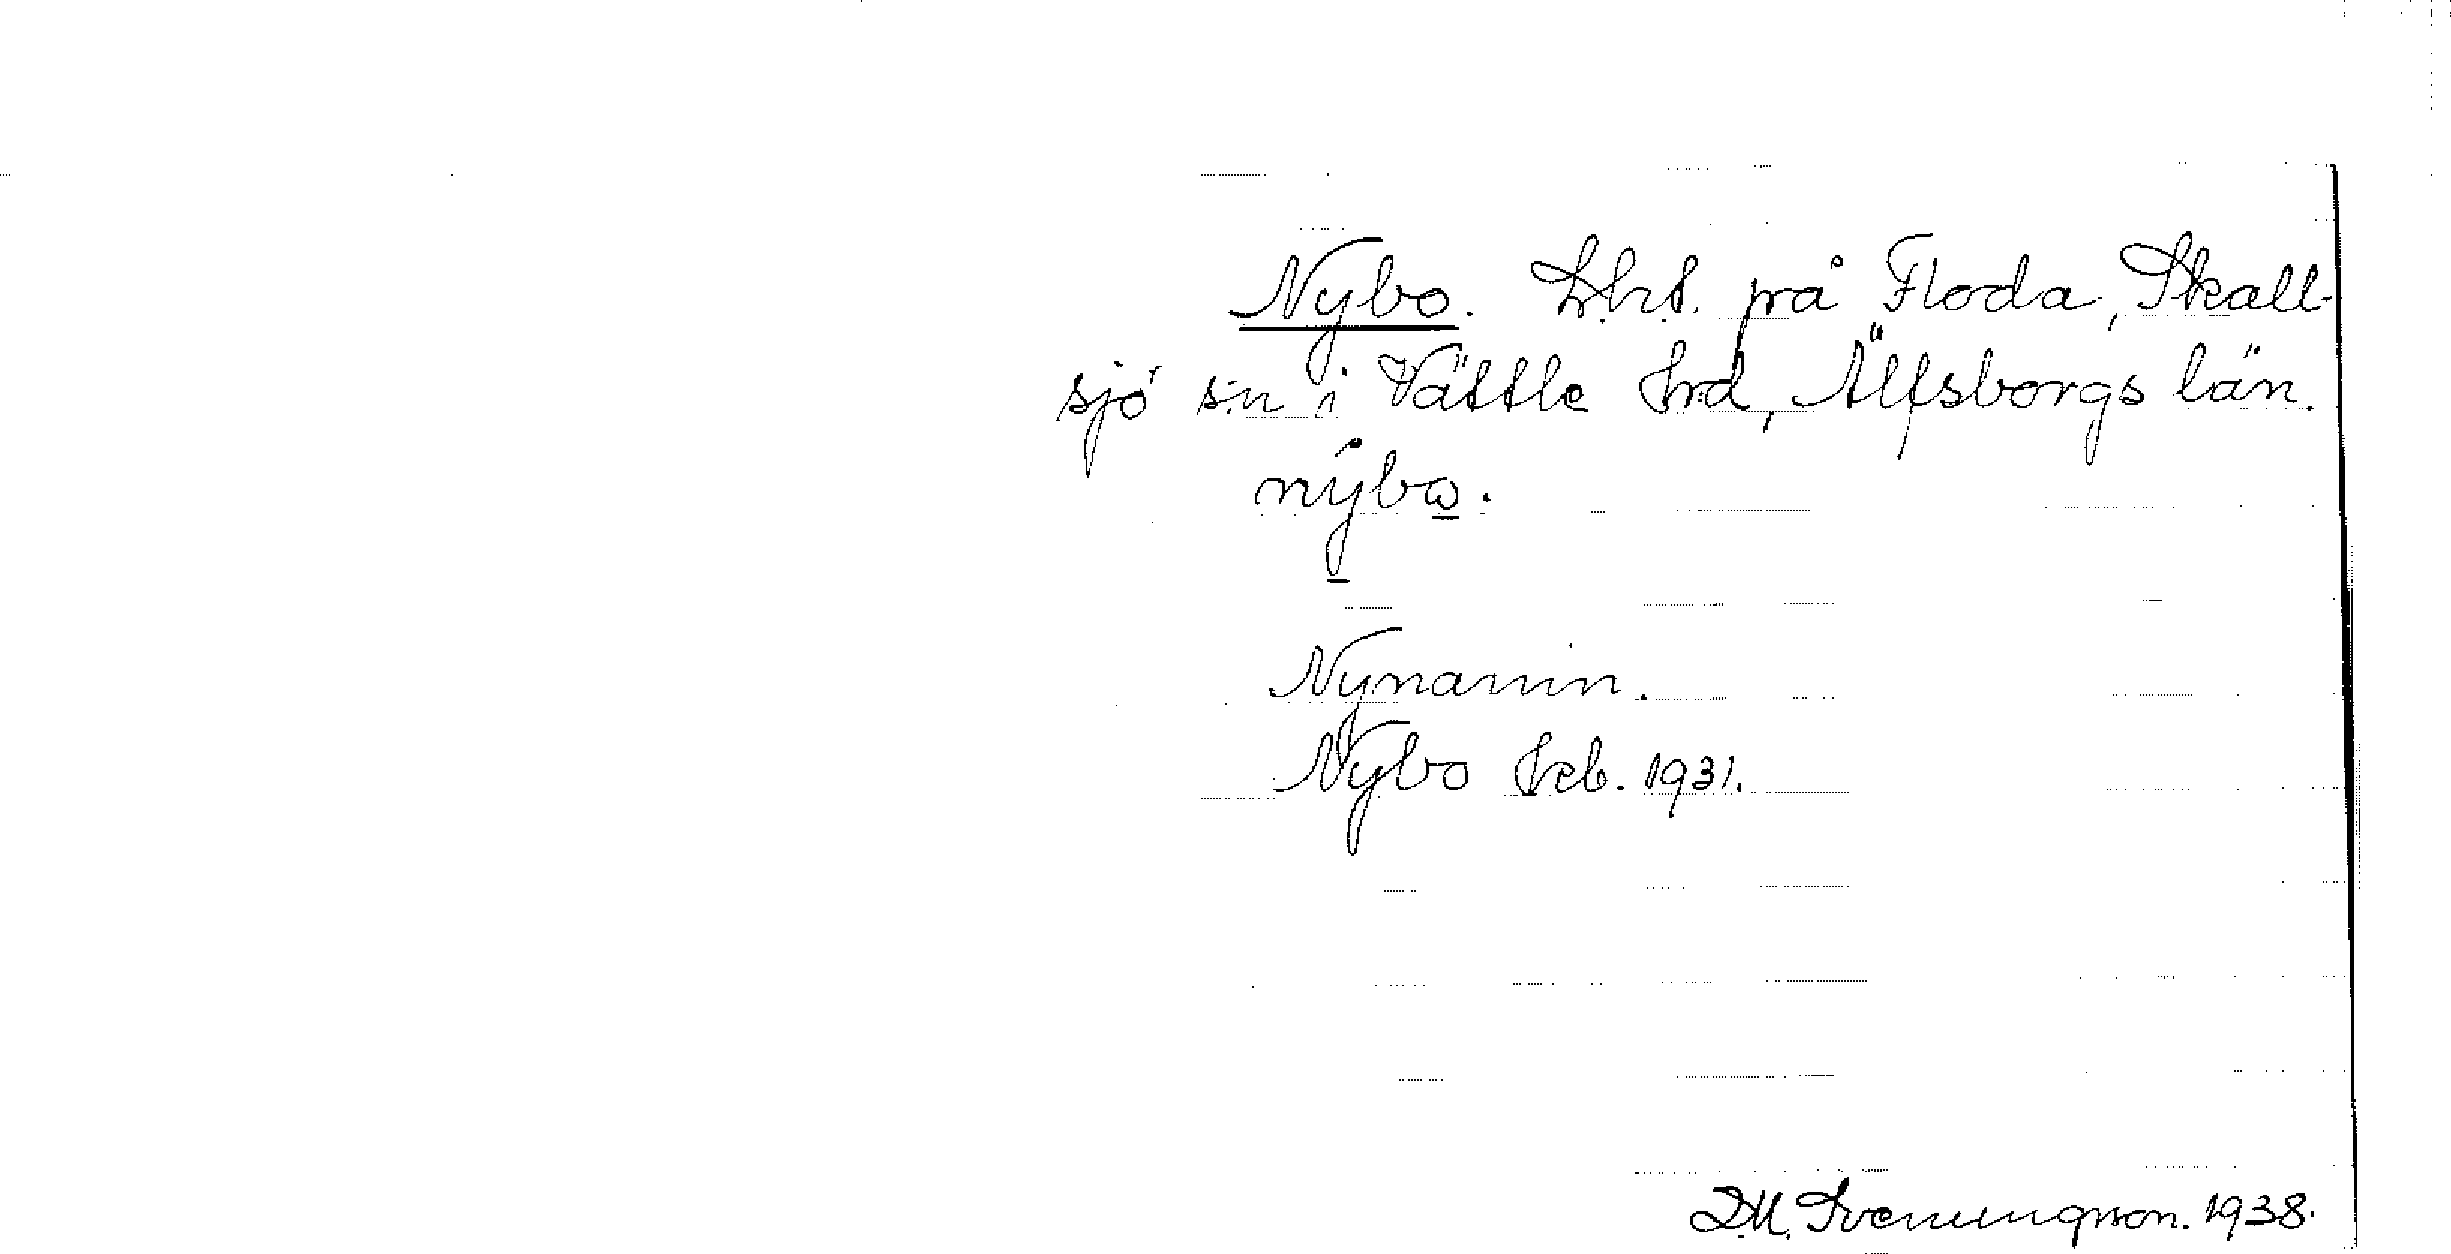 Nybo. Lht. på Floda, Skall-
sjö sn i Vättle hrd, Älfsborgs län.
nybo.
Nynamn.
Nybo Jreb. 1931.
D.M. Svenningson. 1938.